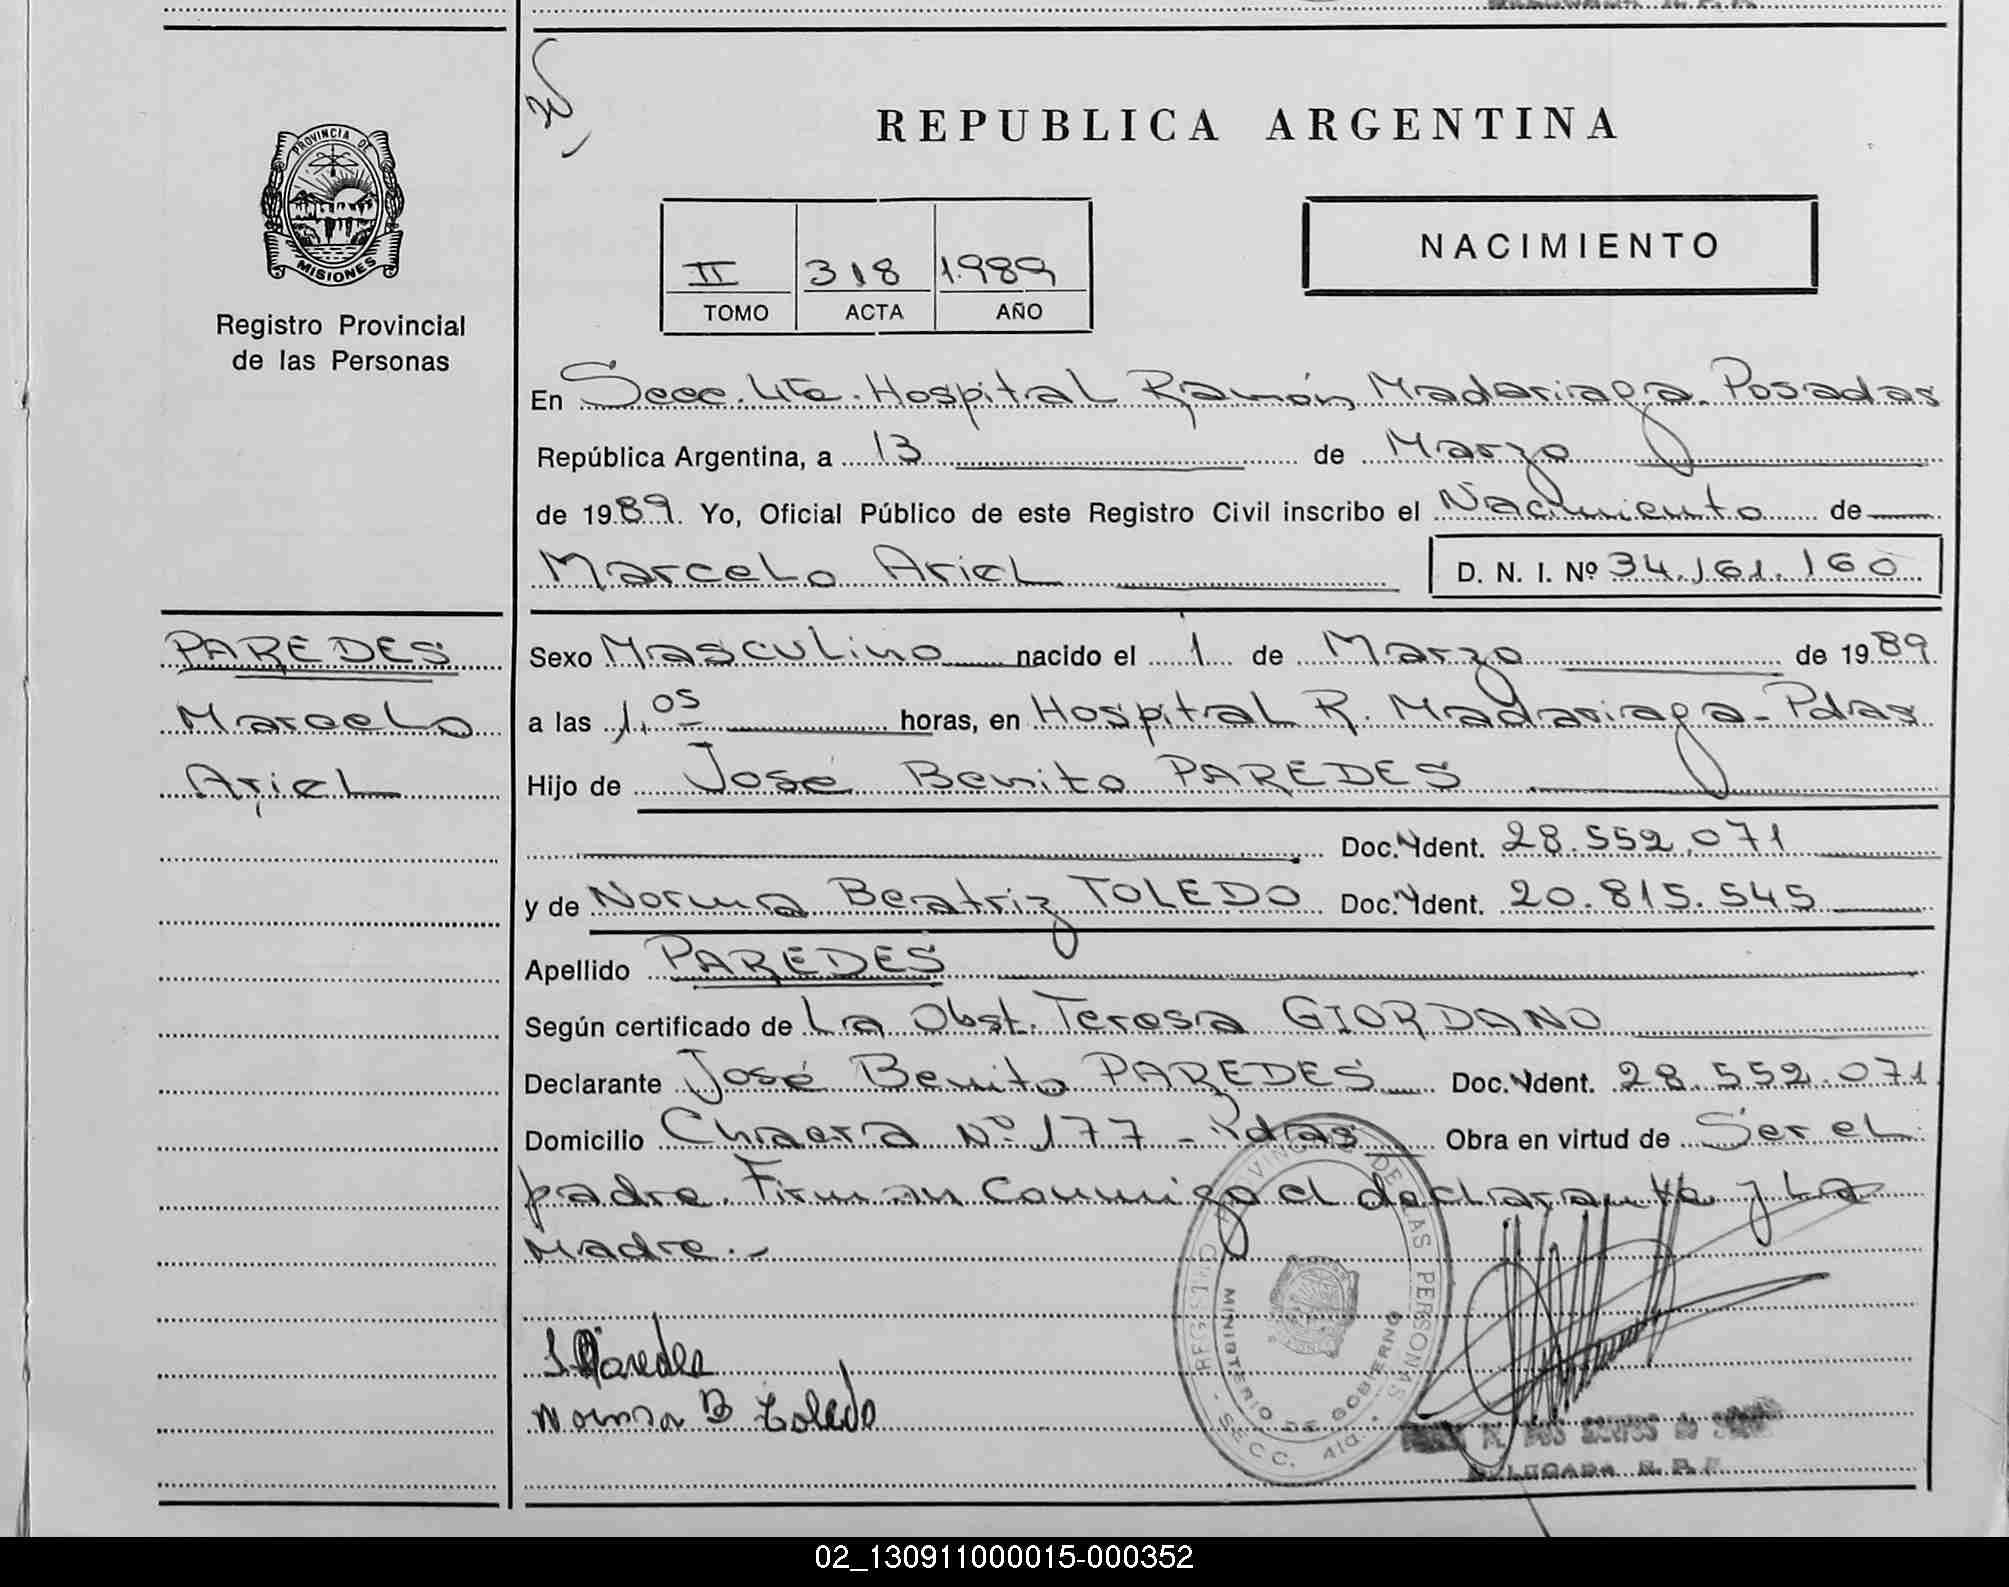 REPUBLICA ARGENTINA
PROVINCIA DE
MISIONES
Registro Provincial
de las Personas
II 318 1.989
TOMO ACTA AÑO
NACIMIENTO
En Secc. 4ta. Hospital Ramón Madariaga. Posadas
República Argentina, a 13 de Marzo
de 1989. Yo, Oficial Público de este Registro Civil inscribo el Nacimiento de
Marcelo Ariel D. N. I. Nº 34.161.160
PAREDES
Marcelo
Ariel
Sexo Masculino nacido el 1 de Marzo de 1989
a las 1,05 horas, en Hospital R. Madariaga - Pdas
Hijo de José Benito PAREDES
Doc. Ident. 28.552.071
y de Norma Beatriz TOLEDO Doc. Ident. 20.815.545
Apellido PAREDES
Según certificado de La Obst. Teresa GIORDANO
Declarante José Benito PAREDES Doc. Ident. 28.552.071
Domicilio Chacra Nº 177 - Pdas Obra en virtud de Ser el
padre. Firman conmigo el declarante y La
Madre.-
REGISTRO PROVINCIAL DE LAS PERSONAS
MINISTERIO DE GOBIERNO
SECC. 4ta.
J. Paredes
Norma B Toledo
M. DOS SANTOS de
DELEGADA R. P. P.
02_130911000015-000352